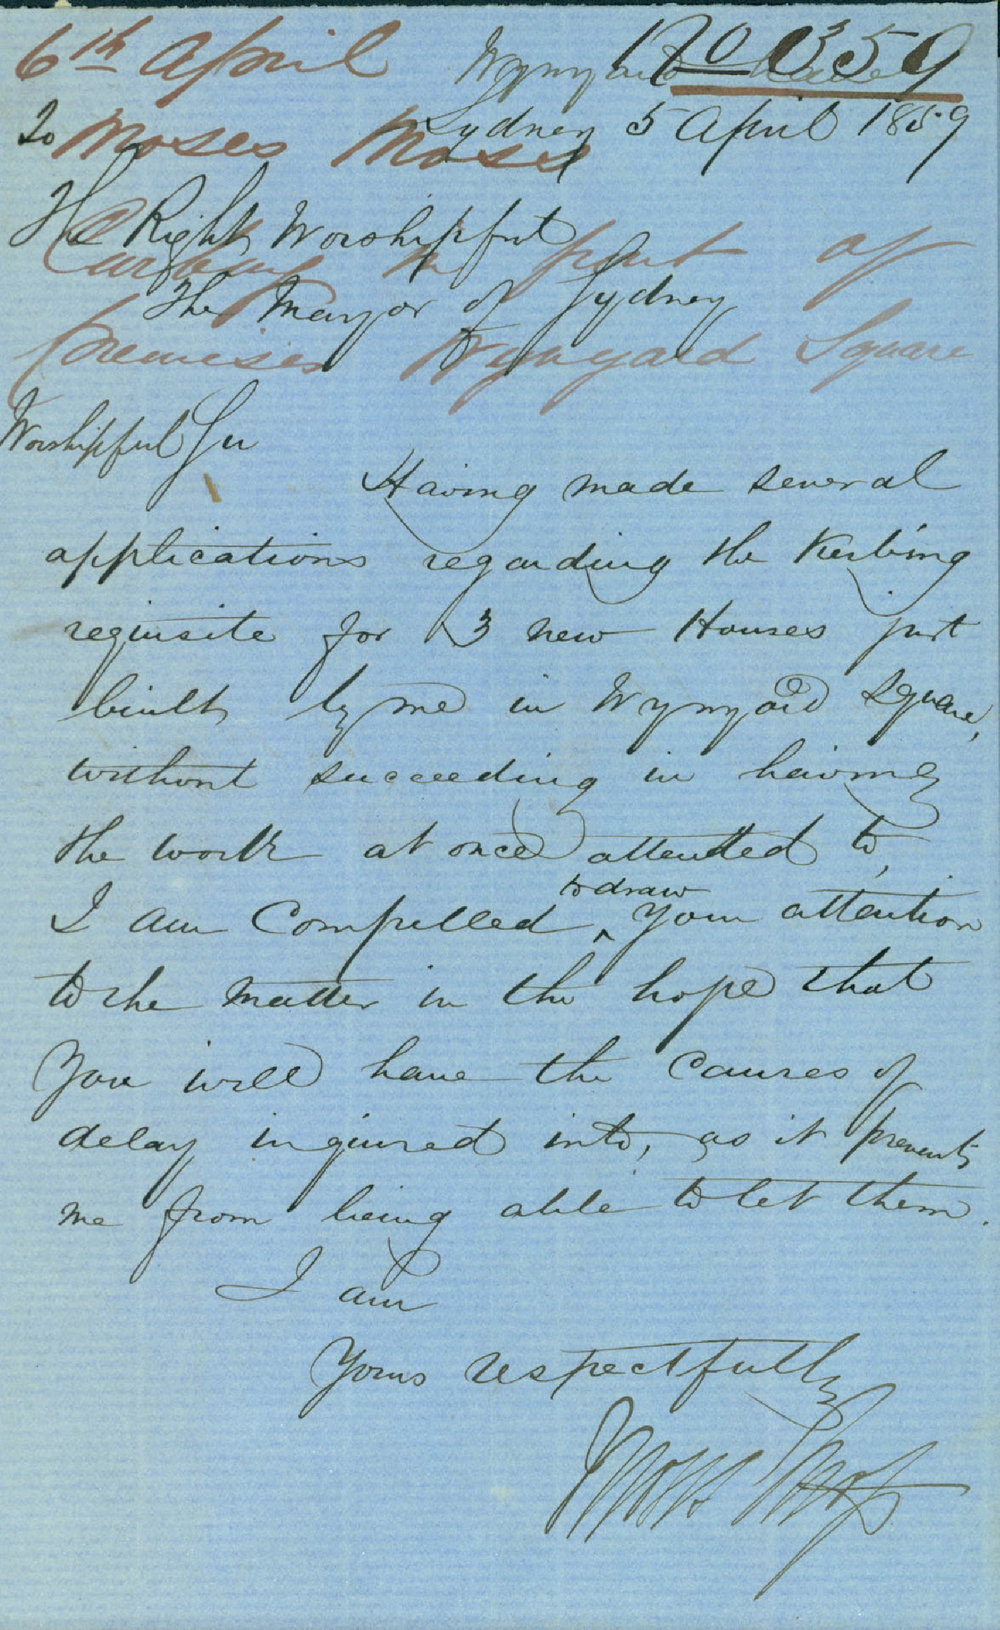 6th April
Wynyard Square
Sydney 5 April 1859
To
Moses Moss
The Right Worshipful
Curbing in front of
The Mayor of Sydney
premises Wynyard Square
Worshipful Sir
Having made several
applications regarding the Kerbing
requisite for 3 new Houses just
built by me in Wynyard Square,
without succeeding in having
the work at once attended to,
I am Compelled ^ to draw Your attention
to the matter in the hope that
You will have the Causes of
delay inquired into, as it prevents
me from being able to let them.
I am
Yours respectfully
Moses Moss